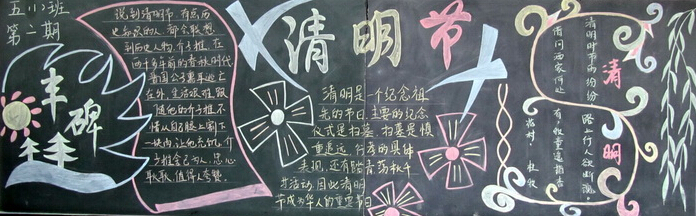 五(1)班
第二期
丰碑
说到清明节,有点历
史知识的人,都会联想
到历史人物介子推,在
两千多年前的春秋时代
晋国公子重耳逃亡
在外,生活艰难,跟
随他的介子推不
惜从自己腿上割下
一块肉让他充饥,介
子推舍己为人,忠心
耿耿,值得人尊敬。
清明节
清明是一个纪念祖
先的节日,主要的纪念
仪式是扫墓,扫墓是慎
重追远、行孝的具体
表现,还有踏青荡秋千
等活动,因此清明
节成为华人的重要节日
清明
清明时节雨纷纷
路上行人欲断魂,
借问酒家何处
有,牧童遥指杏
花村。 杜牧